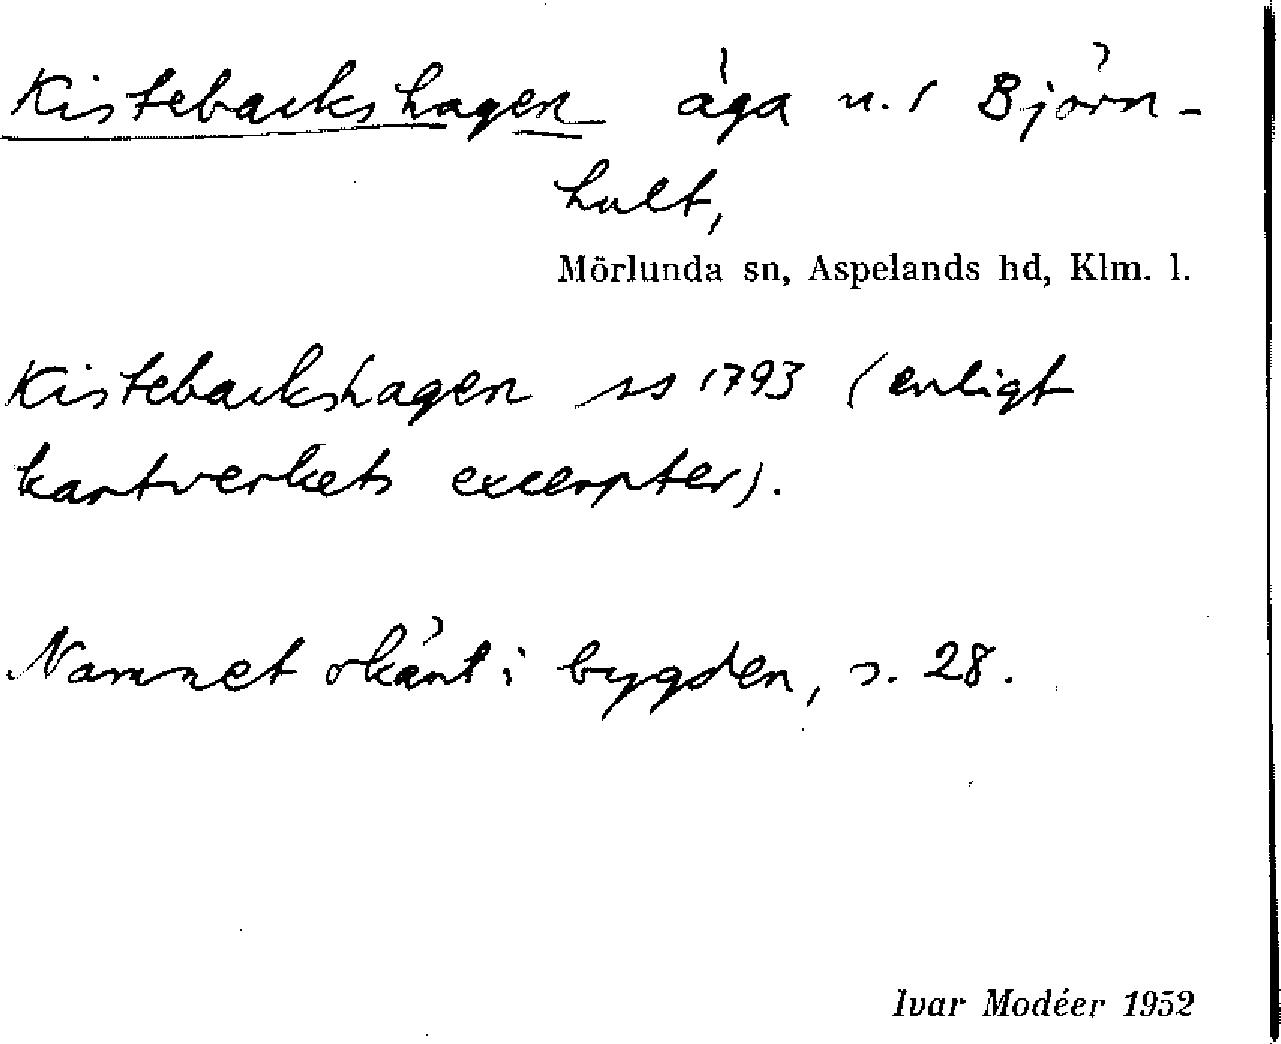 Kistebackshagen äga n. 1 Björn-
hult,
Mörlunda sn, Aspelands hd, Klm. l.
Kistebackshagen ss 1793 (enligt
kartverkets excerpter).
Namnet okänt i bygden, s. 28.
Ivar Modéer 1952